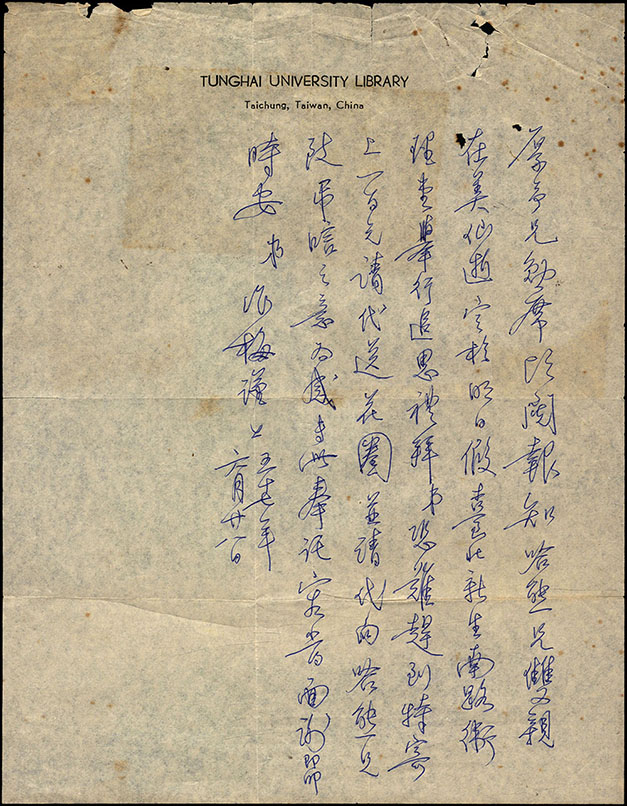 TUNGHAI UNIVERSITY LIBRARY
Taichung, Taiwan, China
兄勛席頃閱報知哈熊兄雙親
在美仙逝定於明日假臺北新生南路衛
理堂舉行追思禮拜弟恐難趕到特寄
上一百元請代送花圈並請代向哈熊兄
致弔唁之意為感專此奉託容當面謝即
時安 弟 振梅謹上 五七年
六月廿一日